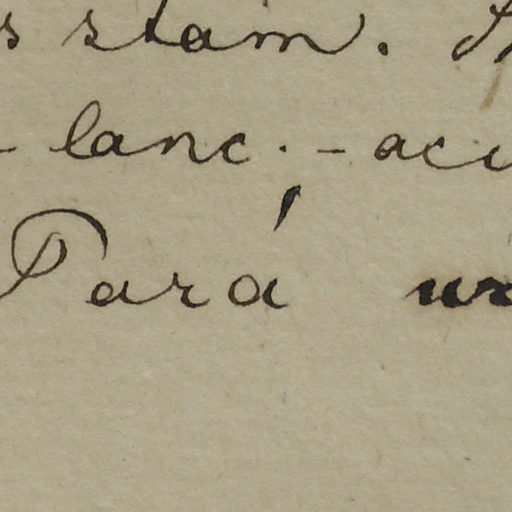 s stam.
- lanc. - aci
Pará ur